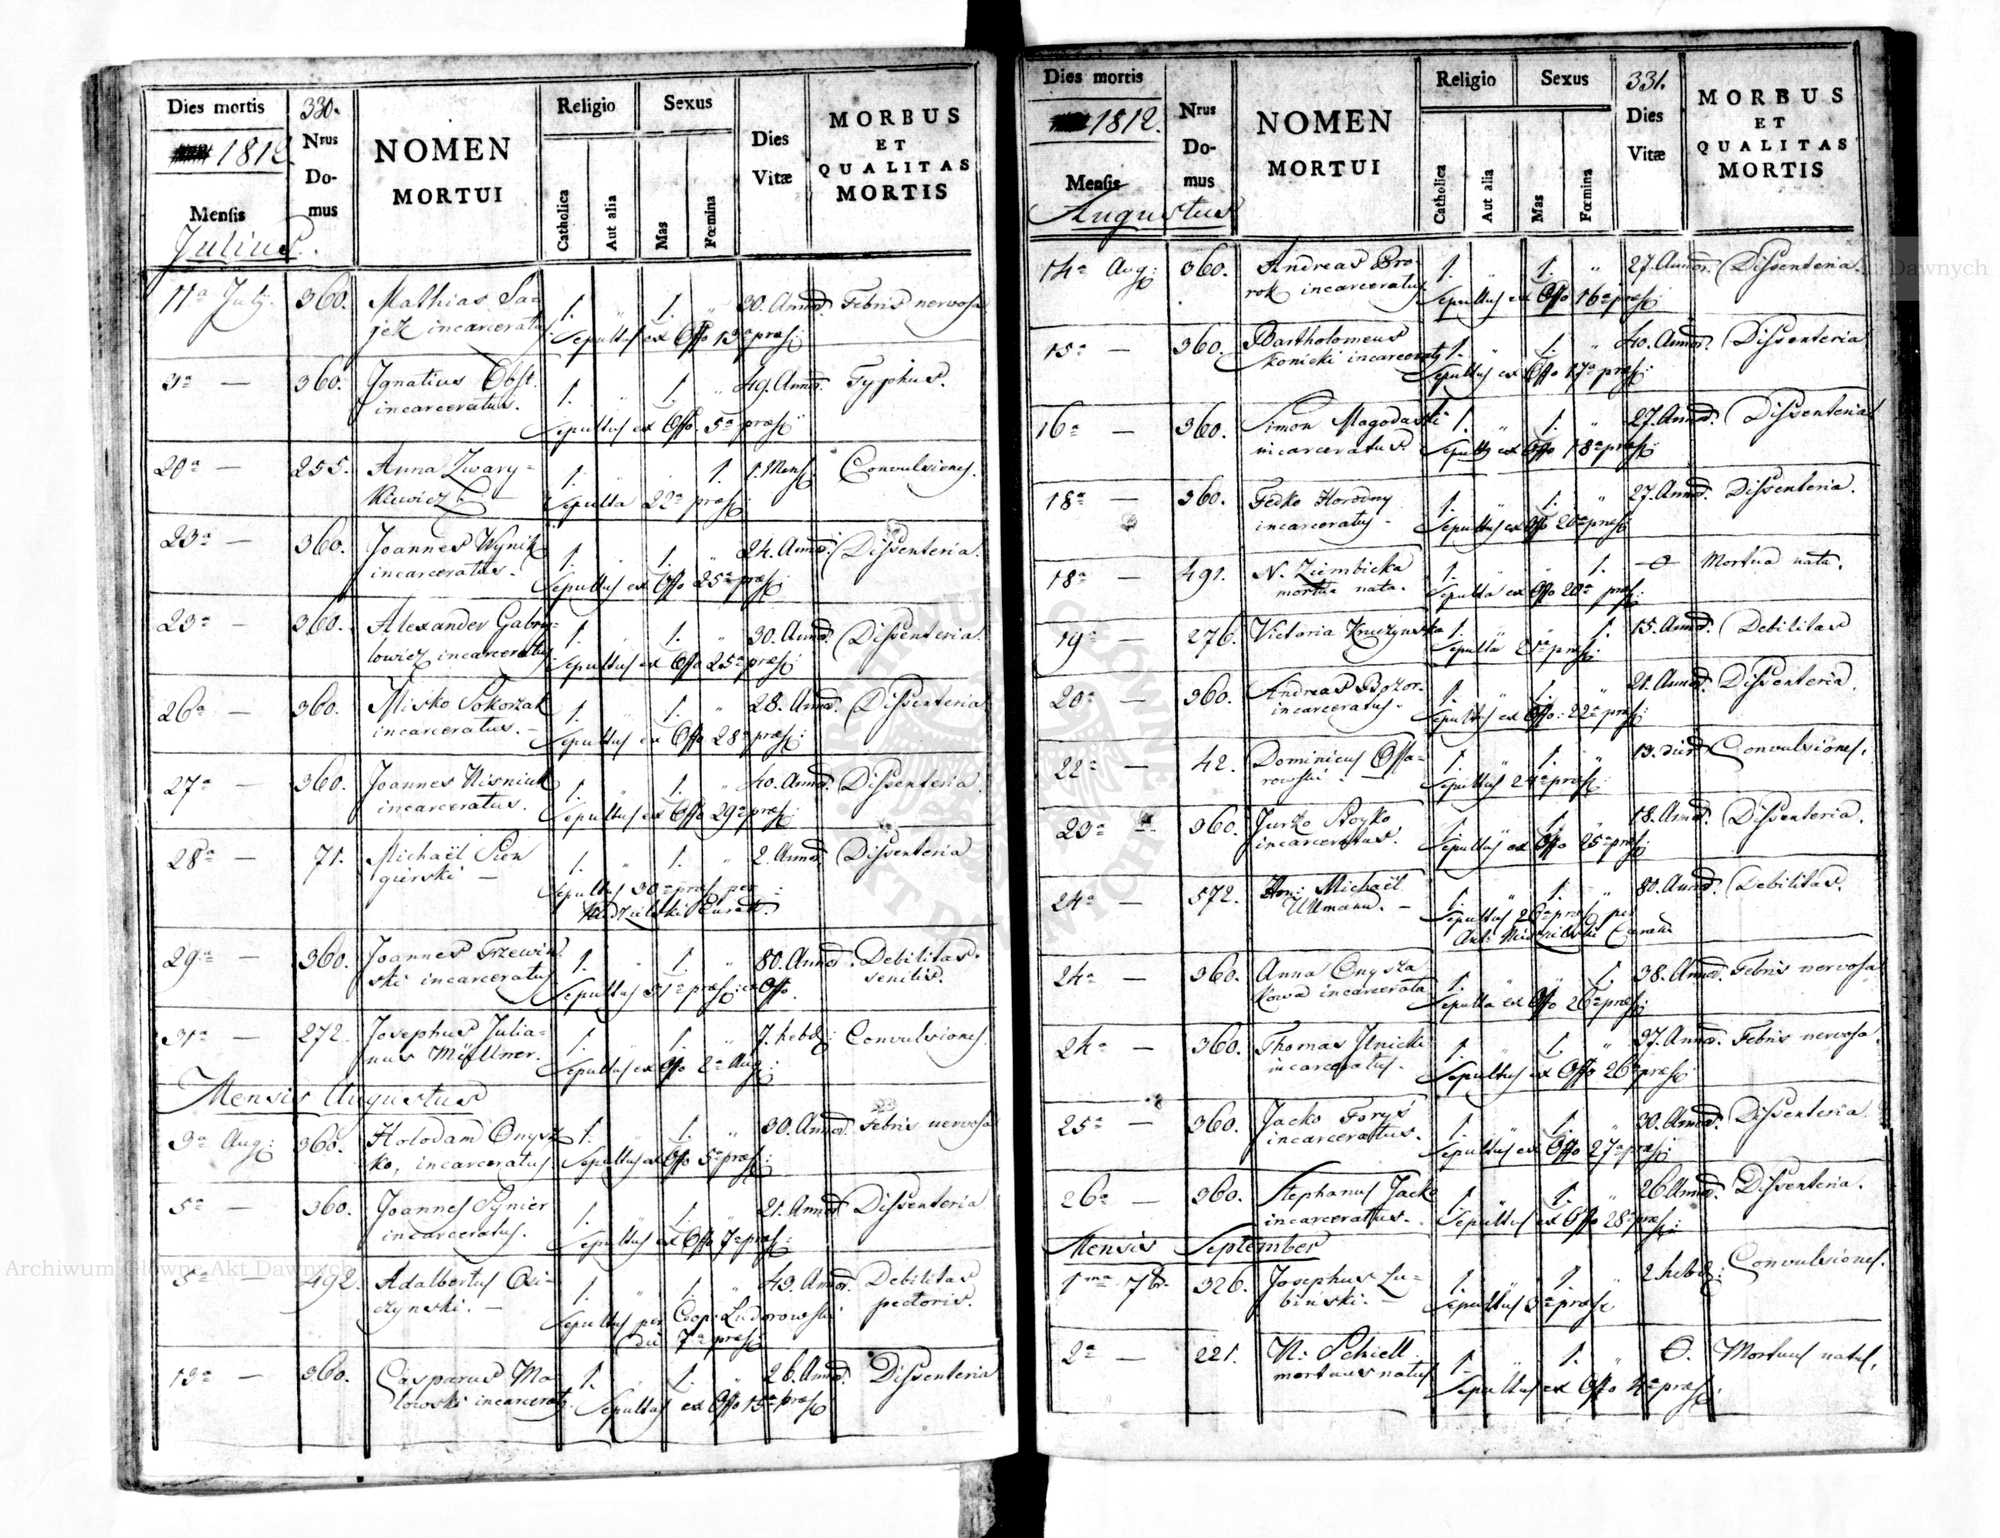 Dies mortis
330.
Religio
Sexus
1812.
Nrus
Do-
mus
NOMEN
MORTUI
Catholica
Aut alia
Mas
Fœmina
Dies
Vitæ
MORBUS
ET
QUALITAS
MORTIS
Mensis
Julius.
11a July. 360. Mathias Sa- 1. „ 1. „ 30. Annor. Febris nervosa
jek incarceratus. Sepultus ex Offo 13a præs:
3a — 360. Ignatius Obst. 1. „ 1. „ 49. Annor. Typhus.
incarceratus. Sepultus ex Offo 5a præs:
20a — 255. Anna Zwary- 1. „ „ 1. 1. Mens. Convulsiones.
kiewicz — Sepulta 22a præs:
23a — 360. Joannes Wynik 1. „ 1. „ 24. Annor. Dissenteria.
incarceratus. Sepultus ex Offo 25a præs:
23a — 360. Alexander Gabry- 1. „ 1. „ 30. Annor. Dissenteria.
lowicz incarceratus Sepultus ex Offo 25a præs:
26a — 360. Misko Sokorzak 1. „ 1. „ 28. Annor. Dissenteria
incarceratus. — Sepultus ex Offo 28a præs:
27a — 360. Joannes Nisniuk 1. „ 1. „ 40. Annor. Dissenteria.
incarceratus. Sepultus ex Offo 29a præs:
28a — 71. Michaël Sien 1. „ 1. „ 2. Annor. Dissenteria
gurski — Sepultus 30a præs: per
29a — 360. Joannes Trzewin 1. „ 1. „ 80. Annor. Debilitas
ski incarceratus Sepultus 31a præs: ex Offo. senilis.
31a — 272. Josephus Julia- 1. „ 1. „ 7. hebd: Convulsiones.
nus Müllner. Sepultus ex Offo 2a Aug:
Mensis Augustus
3a Aug: 360. Holodam Onysz 1. „ 1. „ 30. Annor. Febris nervosa
ko, incarceratus. Sepultus ex Offo 5a præs:
5a — 360. Joannes Synier 1. „ 1. „ 21. Annor. Dissenteria
incarceratus. Sepultus ex Offo 7a præs:
5a — 492. Adalbertus Osi- 1. „ 1. „ 43. Annor. Debilitas
czynski. — Sepultus per Coop: Ludorowski pectoris.
die 7a præs:
13a — 360. Casparus Ma 1. „ 1. „ 26. Annor. Dissenteria
lowski incarceratus. Sepultus ex Offo 15a præs:
Dies mortis
Religio
Sexus
331.
1812.
Nrus
Do-
mus
NOMEN
MORTUI
Catholica
Aut alia
Mas
Fœmina
Dies
Vitæ
MORBUS
ET
QUALITAS
MORTIS
Mensis
Augustus
14a Aug: 360. Andreas Bro- 1. „ 1. „ 27. Annor. Dissenteria.
rok incarceratus Sepultus ex Offo 16a præs:
15a — 360. Bartholomeus 1. „ 1. „ 40. Annor. Dissenteria
Konicki incarceratus Sepultus ex Offo 17a præs:
16a — 360. Simon Magodaski 1. „ 1. „ 27. Annor. Dissenteria
incarceratus. Sepultus ex Offo 18a præs:
18a — 360. Fedko Horodny 1. „ 1. „ 27. Annor. Dissenteria.
incarceratus - Sepultus ex Offo 20a præs:
18a — 491. N. Zimbicka 1. „ „ 1. 0 Mortua nata.
mortua nata. Sepulta ex Offo 20a præs:
19a — 276. Victoria Kruczynska 1. „ „ 1. 15. Annor. Debilitas
Sepulta 21a præs:
20a — 360. Andreas Bozor- 1. „ 1. „ 21. Annor. Dissenteria.
incarceratus. Sepultus ex Offo: 22a præs:
22a — 42. Dominicus Osso- 1. „ 1. „ 13. dier. Convulsiones.
rowski. Sepultus 24a præs:
23a — 360. Jurko Stoyko 1. „ 1. „ 18. Annor. Dissenteria.
incarceratus. Sepultus ex Offo 25a præs:
24a — 572. Hon: Michaël 1. „ 1. „ 80. Annor. Debilitas.
Ullmann. — Sepultus 26a præs: per
24a — 360. Anna Onysz 1. „ „ 1. 38. Annor. Febris nervosa
kowa incarcerata Sepulta ex Offo 26a præs:
24a — 360. Thomas Ilnicki 1. „ 1. „ 37. Annor. Febris nervosa.
incarceratus. Sepultus ex Offo 26a præs:
25a — 360. Jacko Forys 1. „ 1. „ 30. Annor. Dissenteria.
incarceratus. Sepultus ex Offo 27a præs:
26a — 360. Stephanus Jacko 1. „ 1. „ 26. Annor. Dissenteria.
incarceratus. Sepultus ex Offo 28a præs:
Mensis September
1ma 7br. 326. Josephus Lu- 1. „ 1. „ 2. hebd: Convulsiones.
biński. — Sepultus 3a præs:
2a — 221. N: Schiell. 1. „ 1. „ 0. Mortuus natus.
mortuus natus Sepultus ex Offo 4a præs:
Archiwum Główne Akt Dawnych